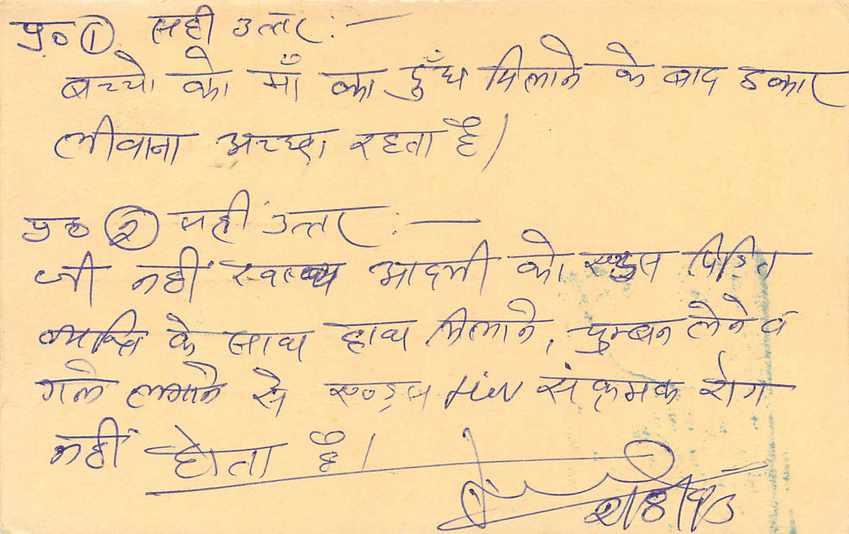 प्र० ① सही उत्तर :-
बच्चे को माँ का दुँध पिलाने के बाद डकार
लीवाना अच्छा रहता है।
प्र० ② सही उत्तर :-
जी नहीं स्वास्थ्य आदमी को एड्स पिड़ित
व्यक्ति के साथ हाथ मिलाने, चुम्बन लेने व
गले लगाने से एड्स HiV संक्रमक रोग
नहीं होता है।